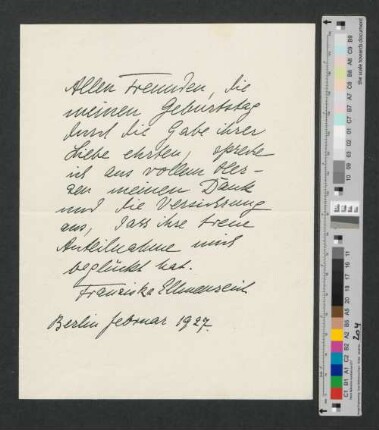 Allen Freunden, die
meinen Geburtstag
durch die Gabe ihrer
Liebe ehrten, spreche
ich aus vollem Her-
zen meinen Dank
und die Versicherung
aus, dass ihre treue
Anteilnahme mich
beglückt hat.
Franziska Ellmenreich
Berlin februar 1927.